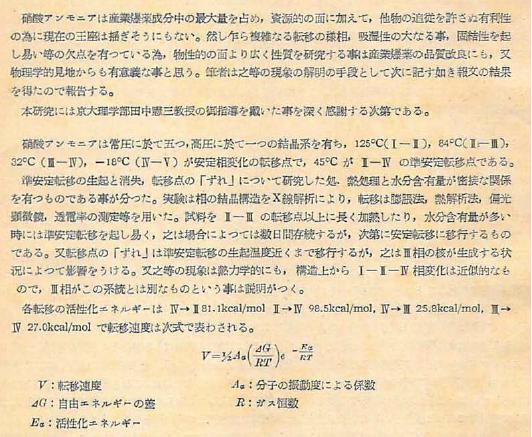 硝酸アンモニアは産業爆薬成分中の最大量を占め，資源的の面に加えて，他物の追従を許さぬ有利性
の為に現在の王座は揺ぎそうにもない。然し乍ら複雑なる転移の様相，吸湿性の大なる事，固結性を起
し易い等の欠点を有つている為，物性的の面より広く性質を研究する事は産業爆薬の品質改良にも，又
物理学的見地からも有意義な事と思う。筆者は之等の現象の解明の手段として次に記す如き報文の結果
を得たので報告する。
本研究には京大理学部田中憲三教授の御指導を戴いた事を深く感謝する次第である。
硝酸アンモニアは常圧に於て五つ，高圧に於て一つの結晶系を有ち，125°C(Ⅰ—Ⅱ)，84°C(Ⅱ—Ⅲ)，
32°C(Ⅲ—Ⅳ)，−18°C(Ⅳ—Ⅴ)が安定相変化の転移点で，45°CがⅡ—Ⅳの準安定転移点である。
準安定転移の生起と消失，転移点の「ずれ」について研究した処，熱処理と水分含有量が密接な関係
を有つものである事が分つた。実験は相の結晶構造をX線解析により，転移は膨脹法，熱解析法，偏光
顕微鏡，透電率の測定等を用いた。試料をⅡ—Ⅲの転移点以上に長く加熱したり，水分含有量が多い
時には準安定転移を起し易く，之は場合によつては数日間存続するが，次第に安定転移に移行するもの
である。又転移点の「ずれ」は準安定転移の生起温度近くまで移行するが，之はⅢ相の核が生成する状
況によつて影響をうける。又之等の現象は熱力学的にも，構造上からⅠ—Ⅱ—Ⅳ相変化は近似的なも
ので，Ⅲ相がこの系統とは別なものという事は説明がつく。
各転移の活性化エネルギーはⅣ→Ⅱ81.1kcal/mol Ⅱ→Ⅳ 98.5kcal/mol，Ⅳ→Ⅲ 25.8kcal/mol，Ⅲ→
Ⅳ 27.0kcal/mol で転移速度は次式で表わされる。
V=½Aₐ(ΔG/RT)e −Eₐ/RT
V：転移速度 Aₐ：分子の振動度による係数
ΔG：自由エネルギーの差 R：ガス恒数
Eₐ：活性化エネルギー